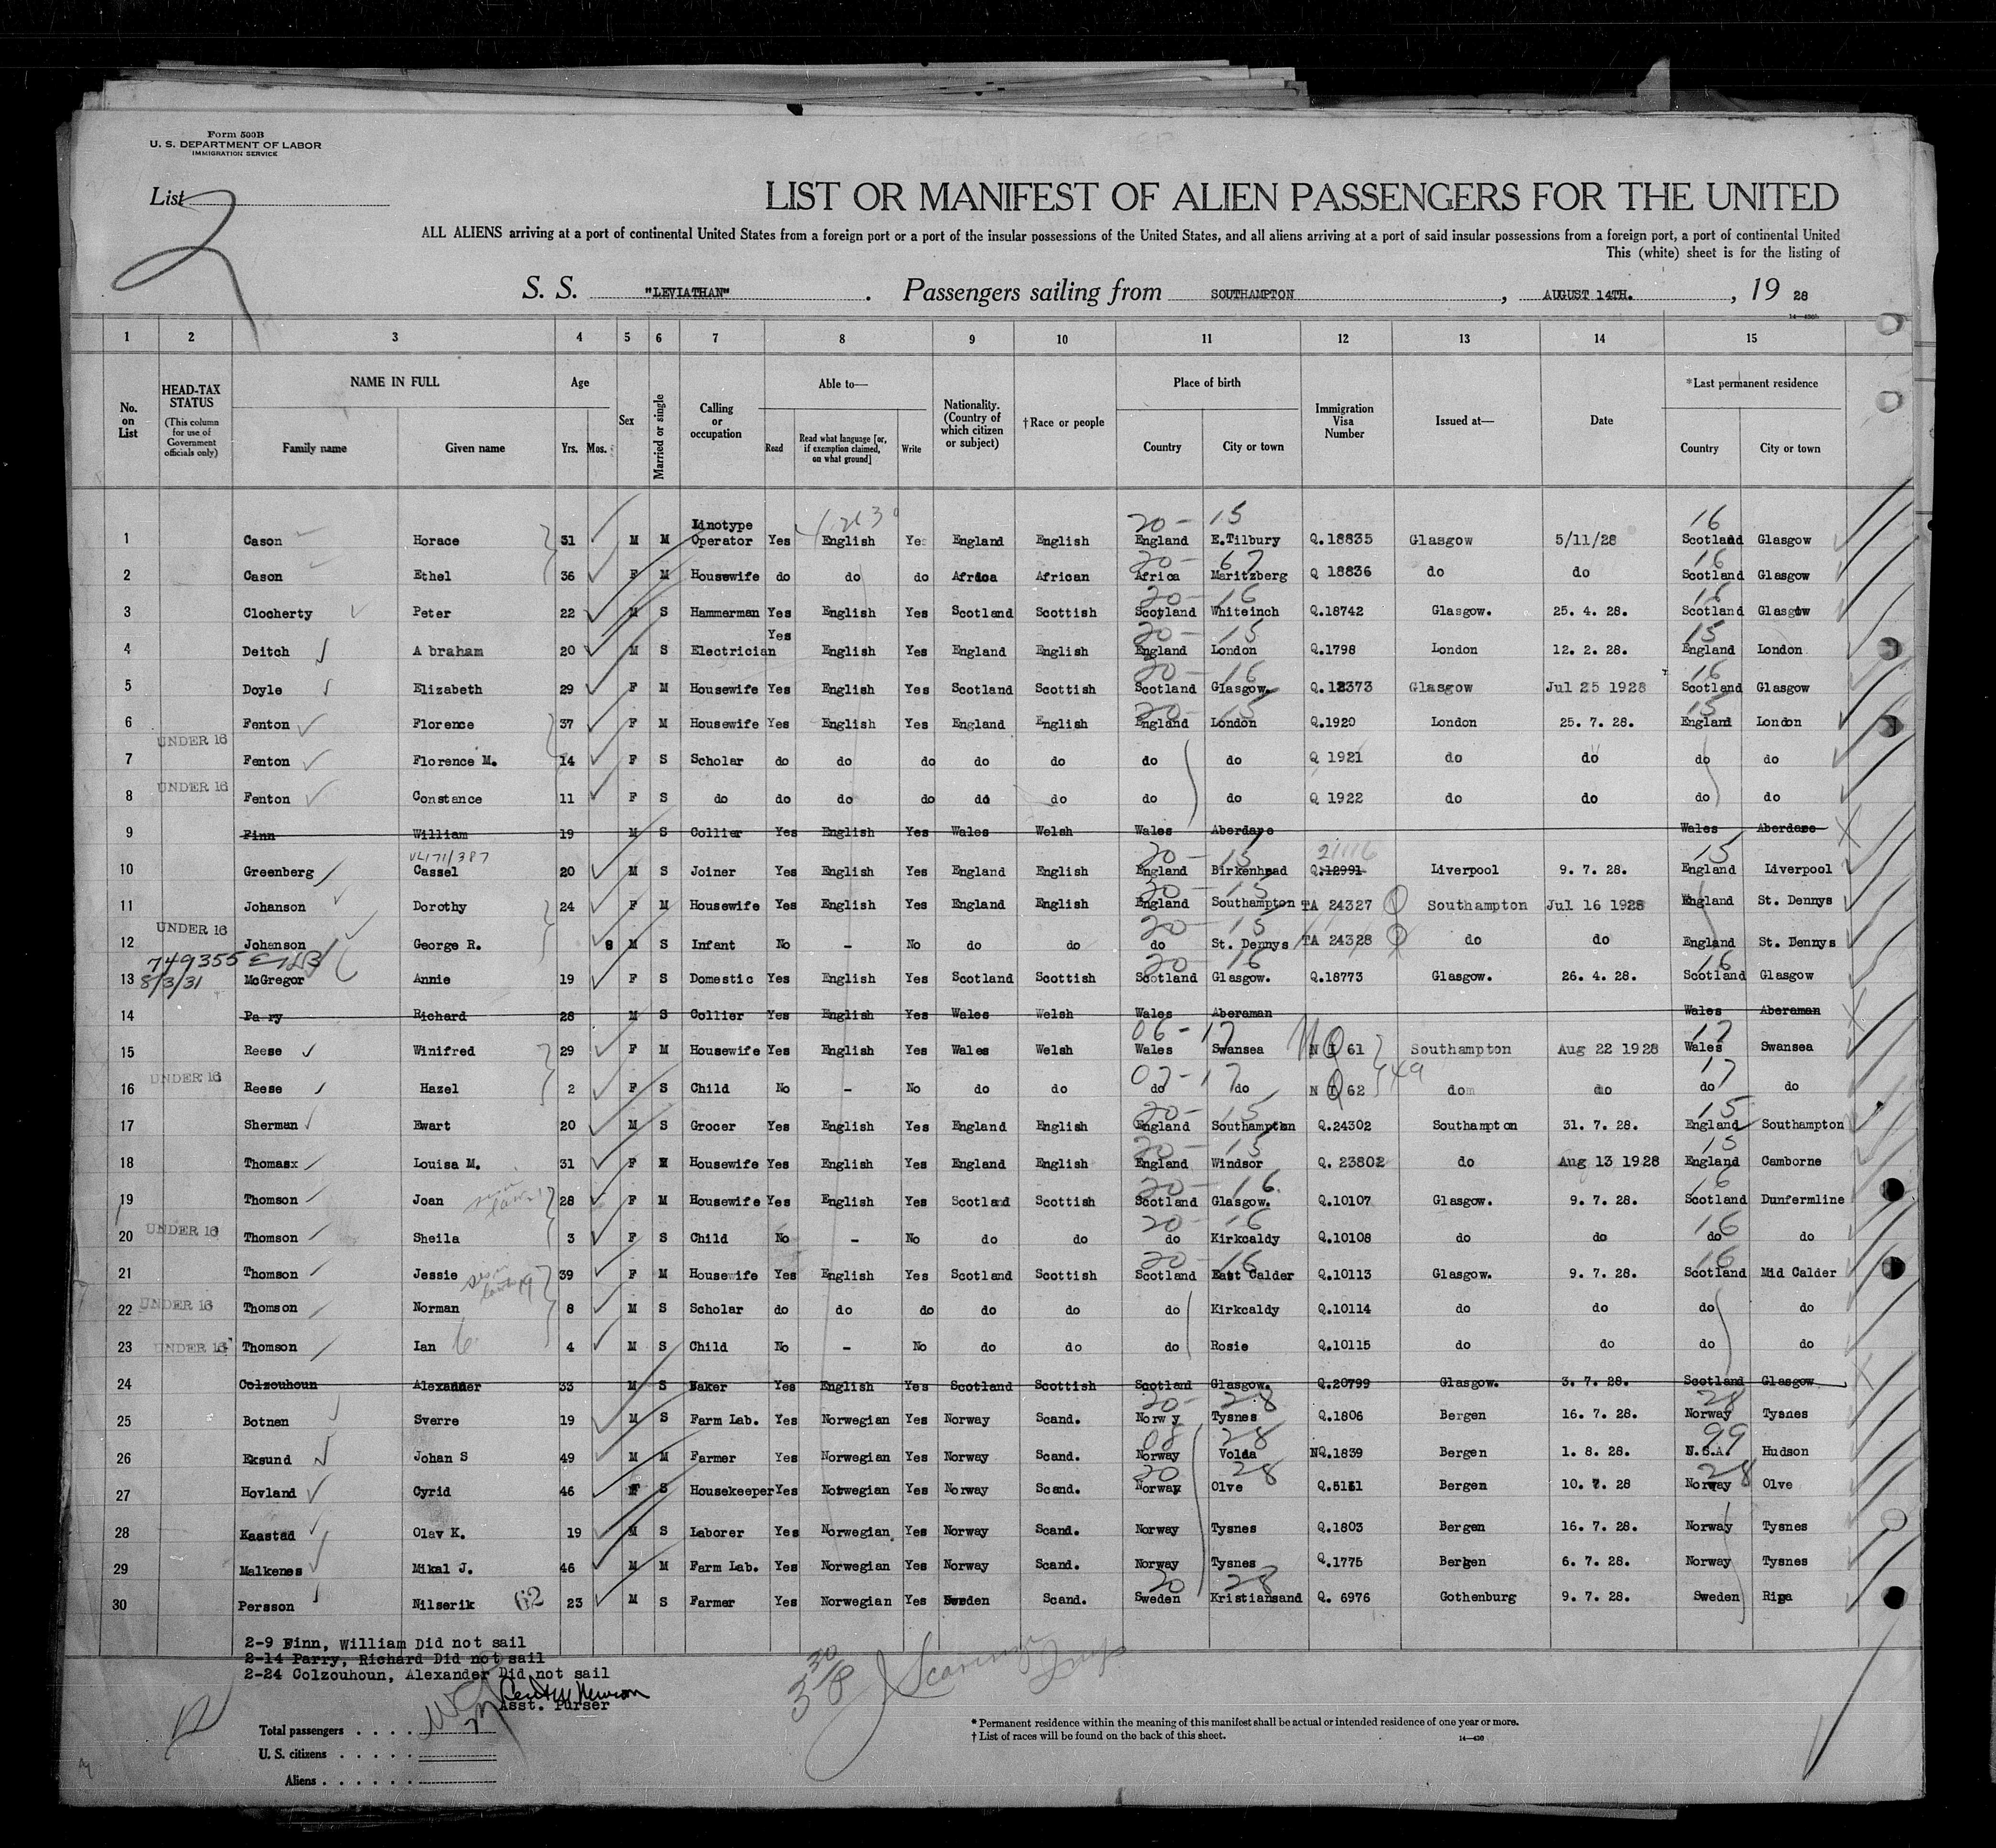 Form 500B
U. S. DEPARTMENT OF LABOR
IMMIGRATION SERVICE
List 2
LIST OR MANIFEST OF ALIEN PASSENGERS FOR THE UNITED
ALL ALIENS arriving at a port of continental United States from a foreign port or a port of the insular possessions of the United States, and all aliens arriving at a port of said insular possessions from a foreign port, a port of continental United
This (white) sheet is for the listing of
S. S. "LEVIATHAN" . Passengers sailing from SOUTHAMPTON , AUGUST 14TH. , 19 28
1 2 3 4 5 6 7 8 9 10 11 12 13 14 15
No. on List
HEAD-TAX STATUS (This column for use of Government officials only)
NAME IN FULL Family name Given name
Age Yrs. Mos.
Sex
Married or single
Calling or occupation
Able to— Read Read what language [or, if exemption claimed, on what ground] Write
Nationality. (Country of which citizen or subject)
†Race or people
Place of birth Country City or town
Immigration Visa Number
Issued at—
Date
*Last permanent residence Country City or town
20- 15 16
1 Cason Horace 31 M M Linotype Operator Yes English Yes England English England E.Tilbury Q.18835 Glasgow 5/11/28 Scotland Glasgow
20- 67 16
2 Cason Ethel 36 F M Housewife do do do Africa African Africa Maritzberg Q 18836 do do Scotland Glasgow
20- 16 16
3 Clocherty Peter 22 M S Hammerman Yes English Yes Scotland Scottish Scotland Whiteinch Q.18742 Glasgow. 25. 4. 28. Scotland Glasgow
20- 15 15
4 Deitch A braham 20 M S Electrician Yes English Yes England English England London Q.1798 London 12. 2. 28. England London
20- 16 16
5 Doyle Elizabeth 29 F M Housewife Yes English Yes Scotland Scottish Scotland Glasgow. Q.12373 Glasgow Jul 25 1928 Scotland Glasgow
20- 15 15
6 Fenton Florence 37 F M Housewife Yes English Yes England English England London Q.1920 London 25. 7. 28. England London
UNDER 16
7 Fenton Florence M. 14 F S Scholar do do do do do do do Q 1921 do do do do
UNDER 16
8 Fenton Constance 11 F S do do do do do do do do Q 1922 do do do do
9 Finn William 19 M S Collier Yes English Yes Wales Welsh Wales Aberdare Wales Aberdare
20- 15 21116 15
10 Greenberg Cassel 20 M S Joiner Yes English Yes England English England Birkenhead Q.12991 Liverpool 9. 7. 28. England Liverpool
20- 15
11 Johanson Dorothy 24 F M Housewife Yes English Yes England English England Southampton TA 24327 Southampton Jul 16 1928 England St. Dennys
UNDER 16 20- 15
12 Johanson George R. 8 M S Infant No - No do do do St. Dennys TA 24328 do do England St. Dennys
749355 20- 16 16
13 8/3/31 McGregor Annie 19 F S Domestic Yes English Yes Scotland Scottish Scotland Glasgow. Q.18773 Glasgow. 26. 4. 28. Scotland Glasgow
14 Parry Richard 28 M S Collier Yes English Yes Wales Welsh Wales Aberaman Wales Aberaman
06-17 17
15 Reese Winifred 29 F M Housewife Yes English Yes Wales Welsh Wales Swansea N I 61 Southampton Aug 22 1928 Wales Swansea
UNDER 16 07-17 17
16 Reese Hazel 2 F S Child No - No do do do do N I 62 do do do do
20- 15 15
17 Sherman Ewart 20 M S Grocer Yes English Yes England English England Southampton Q.24302 Southampton 31. 7. 28. England Southampton
20- 15 15
18 Thomasx Louisa M. 31 F M Housewife Yes English Yes England English England Windsor Q. 23802 do Aug 13 1928 England Camborne
20- 16 16
19 Thomson Joan 28 F M Housewife Yes English Yes Scotland Scottish Scotland Glasgow. Q.10107 Glasgow. 9. 7. 28. Scotland Dunfermline
UNDER 16 20- 16 16
20 Thomson Sheila 3 F S Child No - No do do do Kirkcaldy Q.10108 do do do do
20- 16 16
21 Thomson Jessie 39 F M Housewife Yes English Yes Scotland Scottish Scotland East Calder Q.10113 Glasgow. 9. 7. 28. Scotland Mid Calder
UNDER 16
22 Thomson Norman 8 M S Scholar do do do do do do Kirkcaldy Q.10114 do do do do
UNDER 16
23 Thomson Ian 4 M S Child No - No do do do Rosie Q.10115 do do do do
24 Colzouhoun Alexander 33 M S Baker Yes English Yes Scotland Scottish Scotland Glasgow. Q.20799 Glasgow. 3. 7. 28. Scotland Glasgow
20- 28 28
25 Botnen Sverre 19 M S Farm Lab. Yes Norwegian Yes Norway Scand. Norw y Tysnes Q.1806 Bergen 16. 7. 28. Norway Tysnes
08 28 99
26 Eksund Johan S 49 M M Farmer Yes Norwegian Yes Norway Scand. Norway Volda NQ.1839 Bergen 1. 8. 28. U.S.A. Hudson
20 28 28
27 Hovland Cyrid 46 F S Housekeeper Yes Norwegian Yes Norway Scand. Norway Olve Q.5151 Bergen 10. 7. 28 Norway Olve
28 Kaastad Olav K. 19 M S Laborer Yes Norwegian Yes Norway Scand. Norway Tysnes Q.1803 Bergen 16. 7. 28. Norway Tysnes
29 Malkenes Mikal J. 46 M M Farm Lab. Yes Norwegian Yes Norway Scand. Norway Tysnes Q.1775 Bergen 6. 7. 28. Norway Tysnes
20 28
30 Persson Nilserik 62 23 M S Farmer Yes Norwegian Yes Sweden Scand. Sweden Kristiansand Q. 6976 Gothenburg 9. 7. 28. Sweden Ripa
2-9 Finn, William Did not sail
2-14 Parry, Richard Did not sail
2-24 Colzouhoun, Alexander Did not sail
Asst. Purser
Total passengers . . . .
U. S. citizens . . . . .
Aliens . . . . . .
* Permanent residence within the meaning of this manifest shall be actual or intended residence of one year or more.
† List of races will be found on the back of this sheet.
14—430